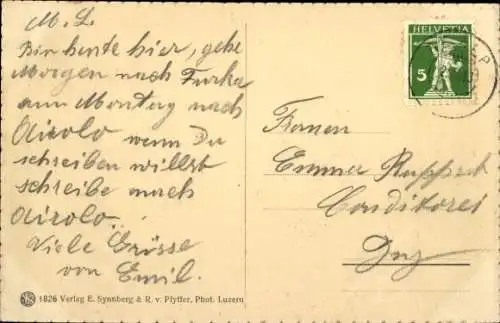 M. L.
Bin heute hier, gehe
Morgen nach Furka
am Montag nach
Airolo wenn Du
schreiben willst
schreibe nach
Airolo.
Viele Grüsse
von Emil.
1826 Verlag E. Synnberg & R. v. Pfyffer, Phot. Luzern
HELVETIA
5
Frauen
Emma Ruppert
Conditorei